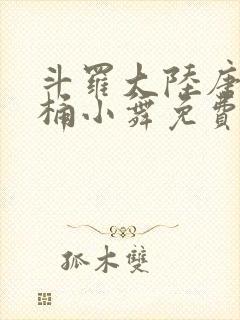 斗羅大陸唐
桶小舞免費
孤木雙